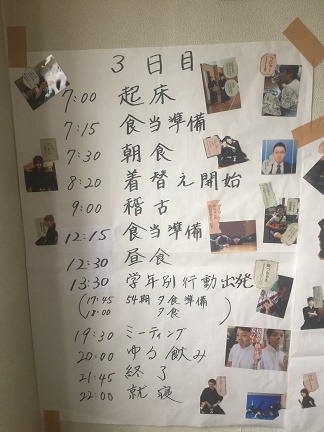 3日目
7:00 起床
7:15 食当準備
7:30 朝食
8:20 着替え開始
9:00 稽古
12:15 食当準備
12:30 昼食
13:30 学年別行動出発
(17:45 54期 夕食準備
18:00 夕食)
19:30 ミーティング
20:00 ゆる飲み
21:45 終了
22:00 就寝